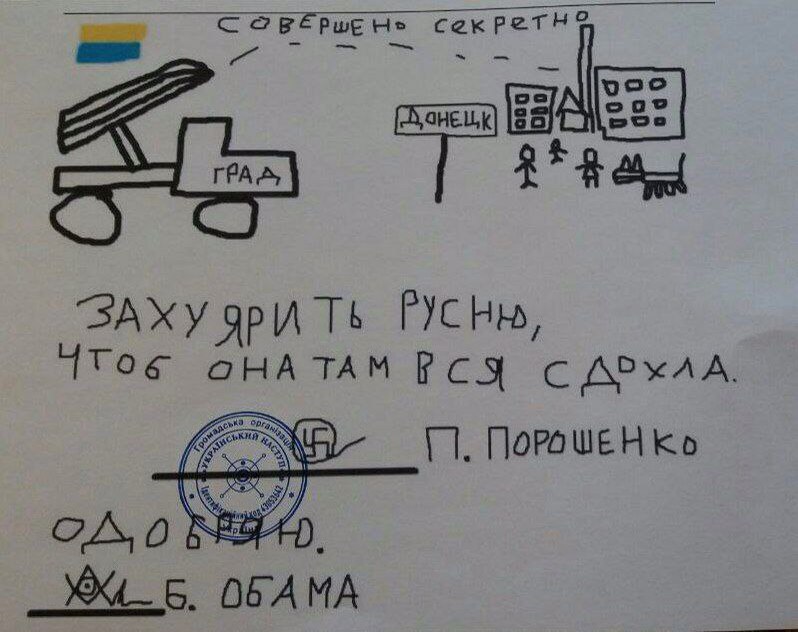 СОВЕРШЕНО СЕКРЕТНО
ДОНЕЦК
ГРАД
ЗАХУЯРИТЬ РУСНЮ,
ЧТОБ ОНА ТАМ ВСЯ СДОХЛА.
Громадська організація
УКРАЇНСЬКИЙ НАСТУП
Ідентифікаційний код
Україна
П. ПОРОШЕНКО
ОДОБРЯЮ.
Б. ОБАМА